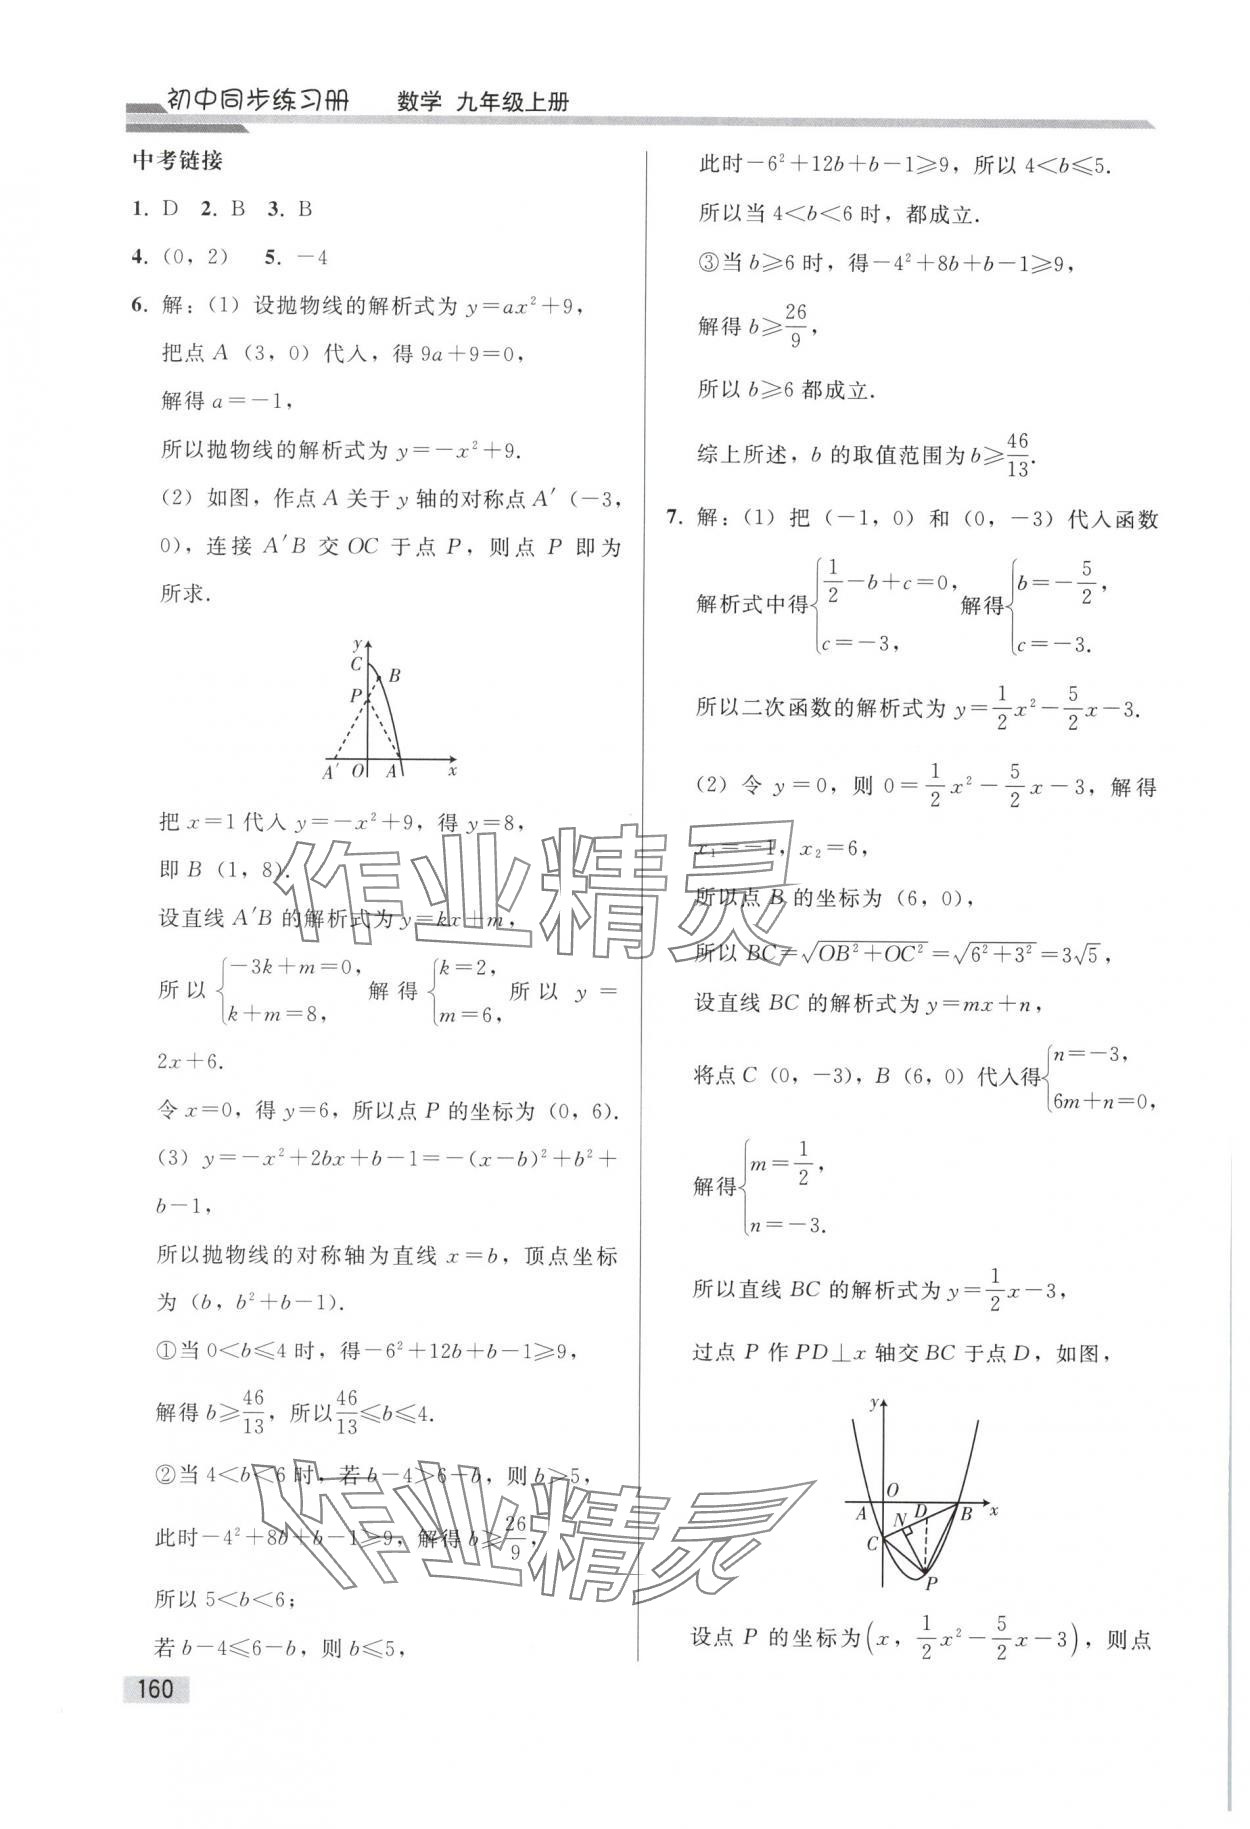 初中同步练习册 数学 九年级上册
中考链接
1. D 2. B 3. B
4. (0, 2) 5. －4
6. 解：(1) 设抛物线的解析式为 y＝ax²＋9，
把点 A (3, 0) 代入，得 9a＋9＝0，
解得 a＝－1，
所以抛物线的解析式为 y＝－x²＋9.
(2) 如图，作点 A 关于 y 轴的对称点 A′ (－3,
0)，连接 A′B 交 OC 于点 P，则点 P 即为
所求.
y
C
B
P
A′ O A x
把 x＝1 代入 y＝－x²＋9，得 y＝8，
即 B (1, 8).
设直线 A′B 的解析式为 y＝kx＋m，
所以 {－3k＋m＝0, k＋m＝8, 解得 {k＝2, m＝6, 所以 y＝
2x＋6.
令 x＝0，得 y＝6，所以点 P 的坐标为 (0, 6).
(3) y＝－x²＋2bx＋b－1＝－(x－b)²＋b²＋
b－1，
所以抛物线的对称轴为直线 x＝b，顶点坐标
为 (b, b²＋b－1).
①当 0＜b≤4 时，得－6²＋12b＋b－1≥9，
解得 b≥46/13，所以 46/13≤b≤4.
②当 4＜b＜6 时，若 b－4＞6－b，则 b＞5，
此时－4²＋8b＋b－1≥9，解得 b≥26/9，
所以 5＜b＜6；
若 b－4≤6－b，则 b≤5，
160
此时－6²＋12b＋b－1≥9，所以 4＜b≤5.
所以当 4＜b＜6 时，都成立.
③当 b≥6 时，得－4²＋8b＋b－1≥9，
解得 b≥26/9，
所以 b≥6 都成立.
综上所述，b 的取值范围为 b≥46/13.
7. 解：(1) 把 (－1, 0) 和 (0, －3) 代入函数
解析式中得 {1/2－b＋c＝0, c＝－3, 解得 {b＝－5/2, c＝－3.
所以二次函数的解析式为 y＝1/2x²－5/2x－3.
(2) 令 y＝0，则 0＝1/2x²－5/2x－3，解得
x₁＝－1，x₂＝6，
所以点 B 的坐标为 (6, 0)，
所以 BC＝√(OB²＋OC²)＝√(6²＋3²)＝3√5，
设直线 BC 的解析式为 y＝mx＋n，
将点 C (0, －3)，B (6, 0) 代入得 {n＝－3, 6m＋n＝0,
解得 {m＝1/2, n＝－3.
所以直线 BC 的解析式为 y＝1/2x－3，
过点 P 作 PD⊥x 轴交 BC 于点 D，如图，
y
O
A N D B x
C
P
设点 P 的坐标为 (x, 1/2x²－5/2x－3)，则点
作业精灵
作业精灵